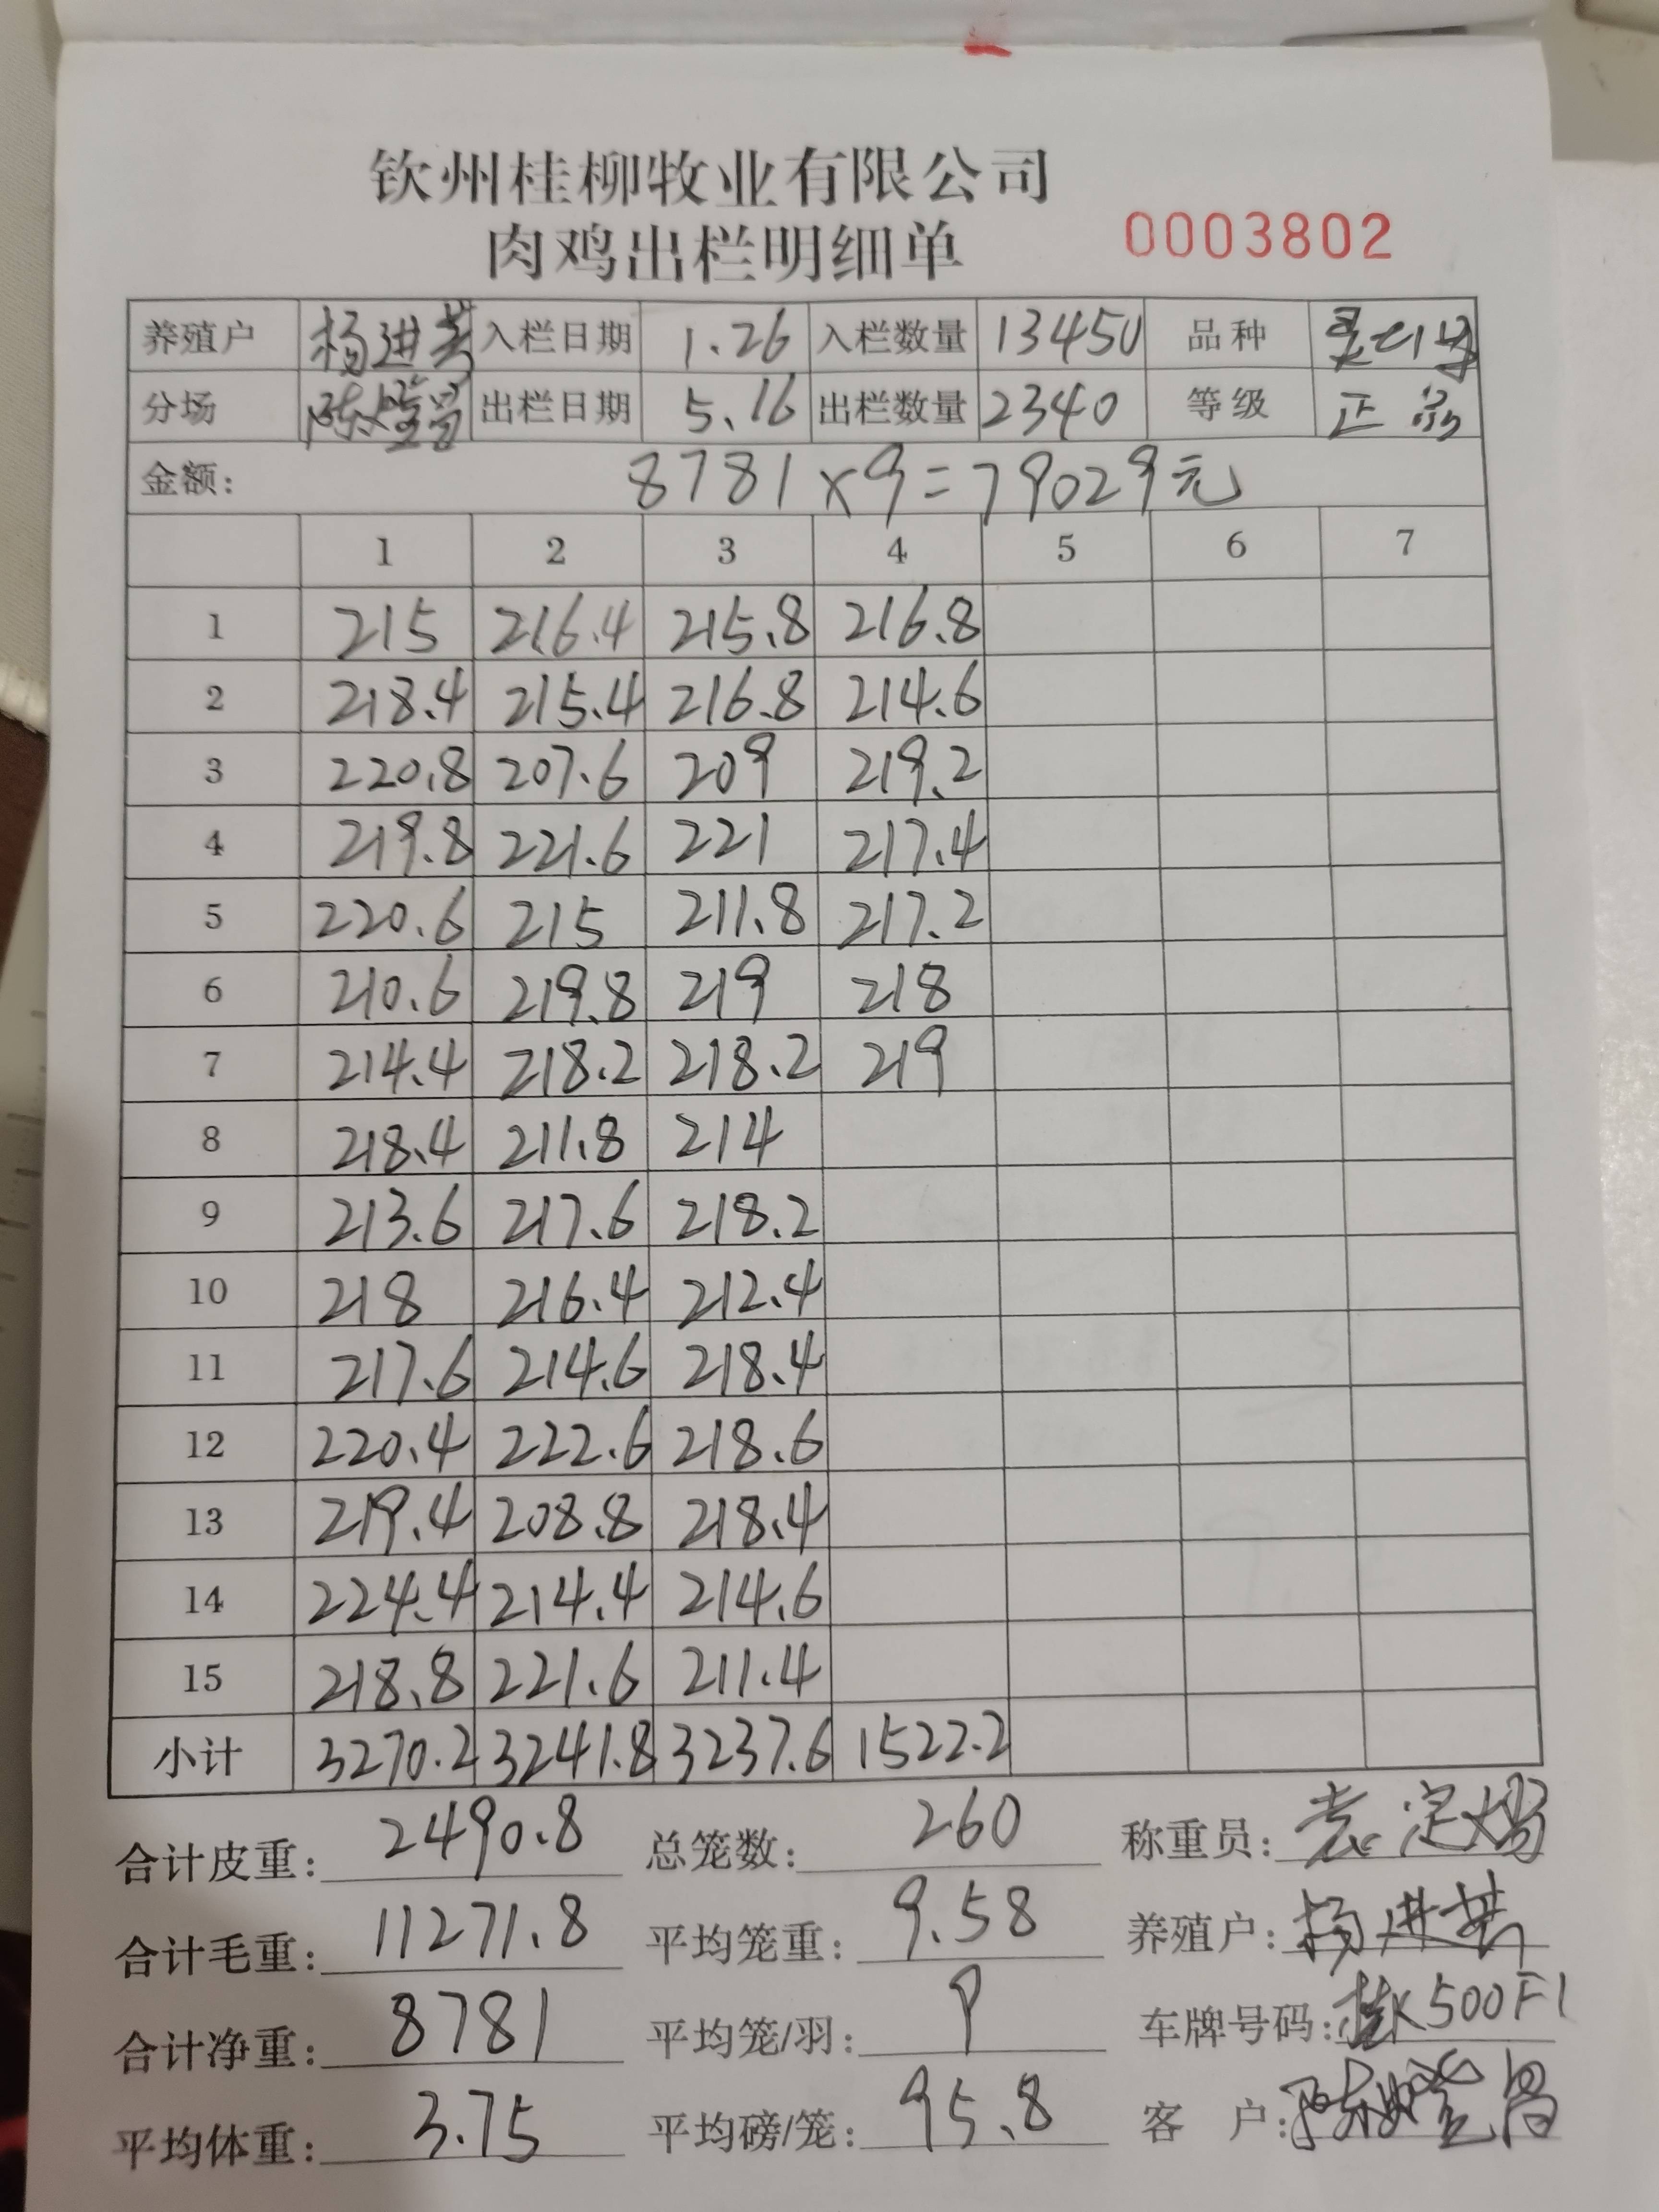 钦州桂柳牧业有限公司
肉鸡出栏明细单 0003802
养殖户 杨进 入栏日期 1.26 入栏数量 13450 品种
分场 陈 出栏日期 5.16 出栏数量 2340 等级 正品
金额: 8781×9=79029元
1 2 3 4 5 6 7
1 215 216.4 215.8 216.8
2 218.4 215.4 216.8 214.6
3 220.8 207.6 209 219.2
4 219.8 221.6 221 217.4
5 220.6 215 211.8 217.2
6 210.6 219.8 219 218
7 214.4 218.2 218.2 219
8 218.4 211.8 214
9 213.6 217.6 218.2
10 218 216.4 212.4
11 217.6 214.6 218.4
12 220.4 222.6 218.6
13 219.4 208.8 218.4
14 224.4 214.4 214.6
15 218.8 221.6 211.4
小计 3270.2 3241.8 3237.6 1522.2
合计皮重: 2490.8 总笼数: 260 称重员: 袁定
合计毛重: 11271.8 平均笼重: 9.58 养殖户: 杨进
合计净重: 8781 平均笼/羽: 9 车牌号码: 桂K500F1
平均体重: 3.75 平均磅/笼: 95.8 客 户: 陈